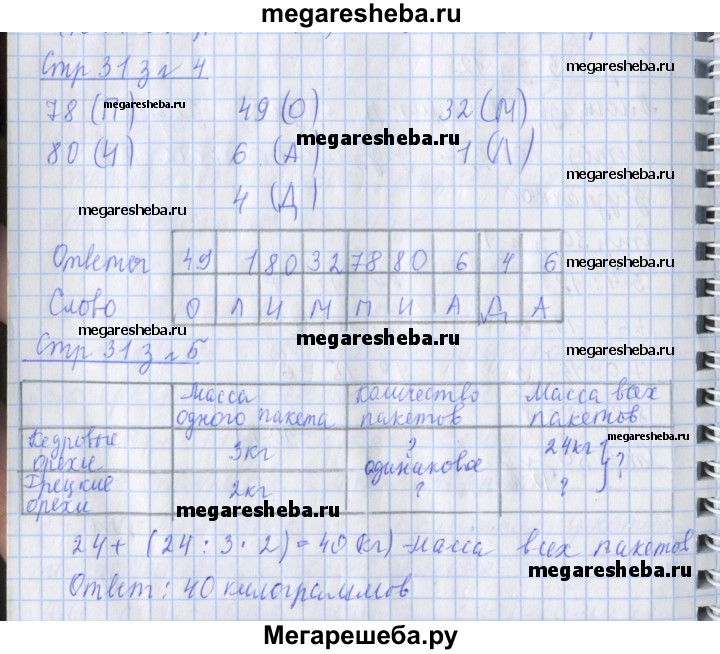 megaresheba.ru
Стр 31 з № 4
megaresheba.ru
78 (П) 49 (О) 32 (М)
megaresheba.ru
megaresheba.ru
80 (И) 6 (А) 1 (Л)
megaresheba.ru
megaresheba.ru
4 (Д)
Ответы 49 1 80 32 78 80 6 4 6
megaresheba.ru
Слово О Л И М П И А Д А
megaresheba.ru
megaresheba.ru
megaresheba.ru
Стр 31 з № 5
Масса одного пакета Количество пакетов Масса всех пакетов
megaresheba.ru
Кедровые орехи 3кг ? 24кг } ?
одинаковое
Грецкие орехи 2кг ? ?
megaresheba.ru
megaresheba.ru
24 + (24 : 3 · 2) = 40 (кг) - масса всех пакетов
megaresheba.ru
Ответ: 40 килограммов
Мегарешеба.ру